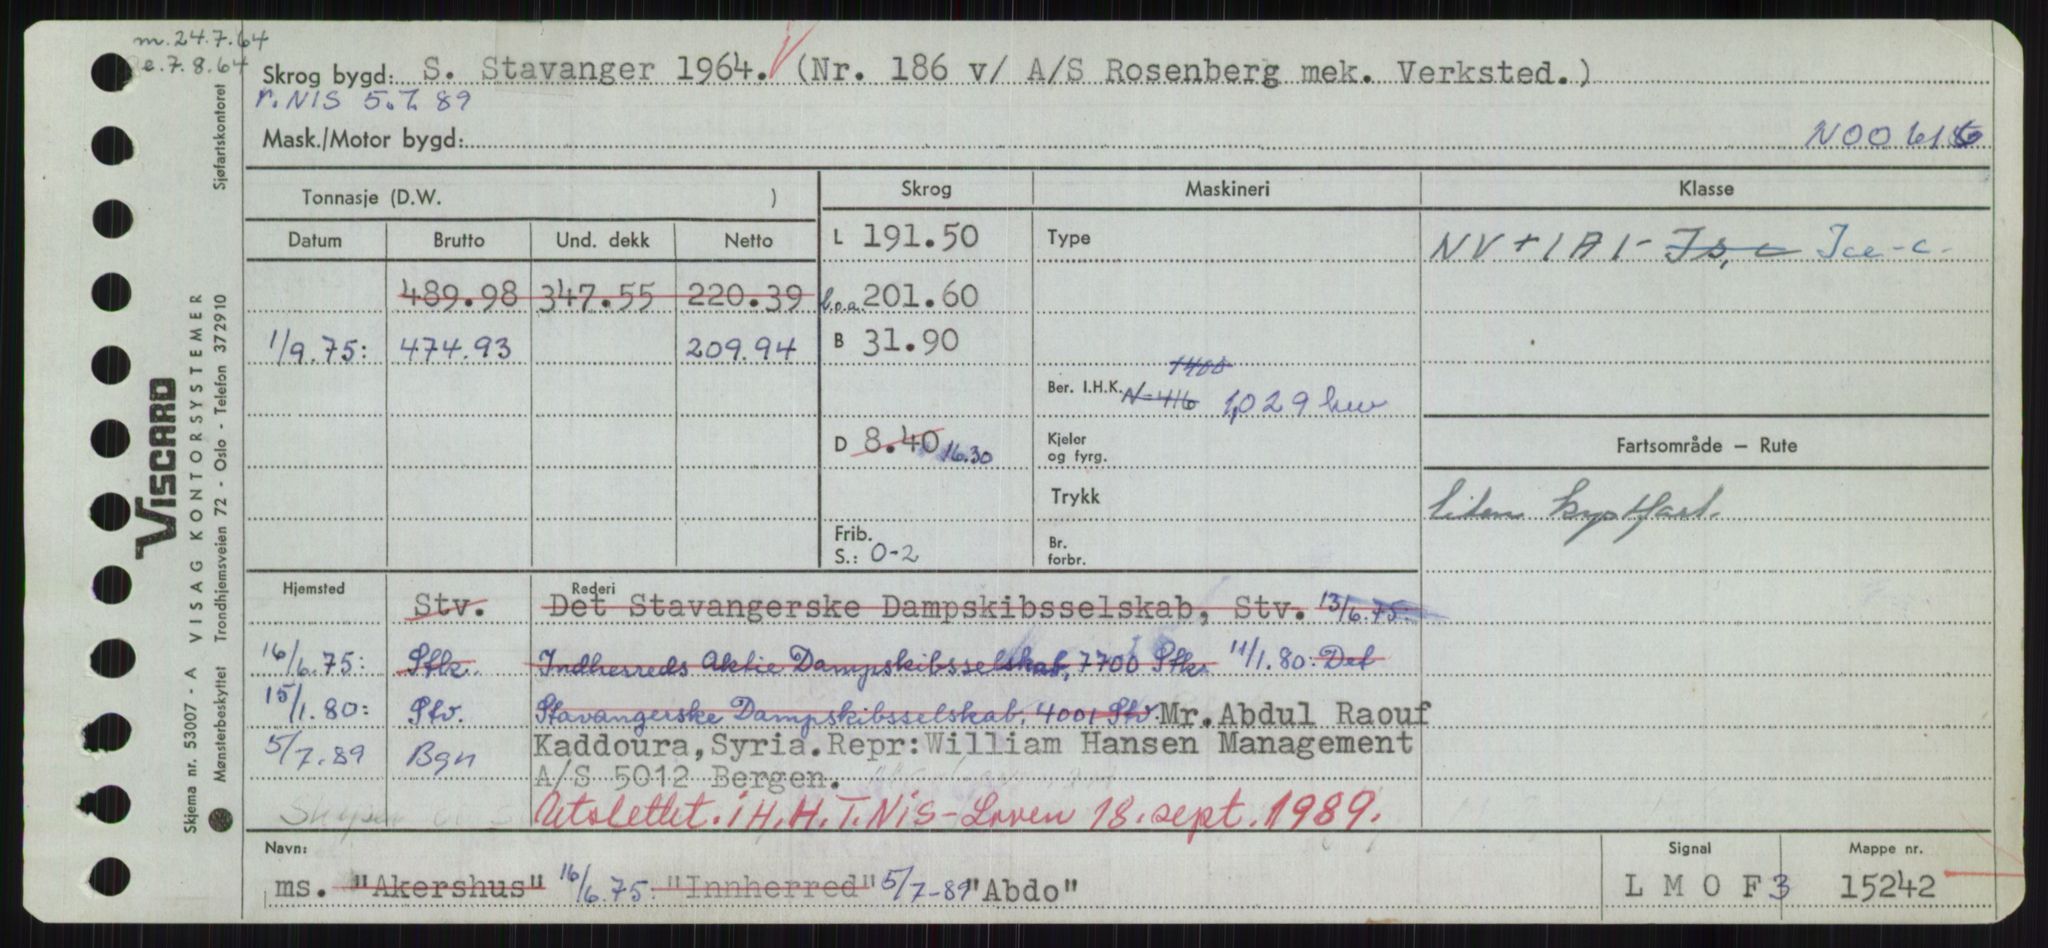 m. 24.7.64
e. 7.8.64
Skrog bygd: S. Stavanger 1964. (Nr. 186 v/ A/S Rosenberg mek. Verksted.)
r. NIS 5.7.89
Mask./Motor bygd:
Tonnasje (D.W. )
Skrog
Maskineri
Klasse
Datum Brutto Und. dekk Netto
L 191.50
Type
NV + 1A1 - Is, c Ice-c-
489.98 347.55 220.39
l.o.a. 201.60
1/9.75: 474.93 209.94
B 31.90
1400
Ber. I.H.K. N-416 1,029 kw
D 8.40 16.30
Kjeler
og fyrg.
Fartsområde – Rute
Trykk
Liten kystfart.
Frib.
S.: 0-2
Br.
forbr.
Hjemsted
Rederi
Stv. Det Stavangerske Dampskibsselskab, Stv. 13/6.75:
16/6.75: Stkr. Indherreds Aktie Dampskibsselskab, 7700 Stkr 11/1.80: Det
15/1.80: Stv. Stavangerske Dampskibsselskab, 4001 Stv. Mr. Abdul Raouf
5/7.89 Bgn Kaddoura, Syria. Repr: William Hansen Management
A/S 5012 Bergen.
Utslettet. i H.H.T. NIS-Loven 18. sept. 1989.
Navn:
Signal
Mappe nr.
ms. "Akershus" 16/6.75: "Innherred" 5/7-89 "Abdo"
L M O F 3
15242
VISCARD
Skjema nr. 53007 - A VISAG KONTORSYSTEMER
Mønsterbeskyttet Trondhjemsveien 72 - Oslo - Telefon 372910 Sjøfartskontoret